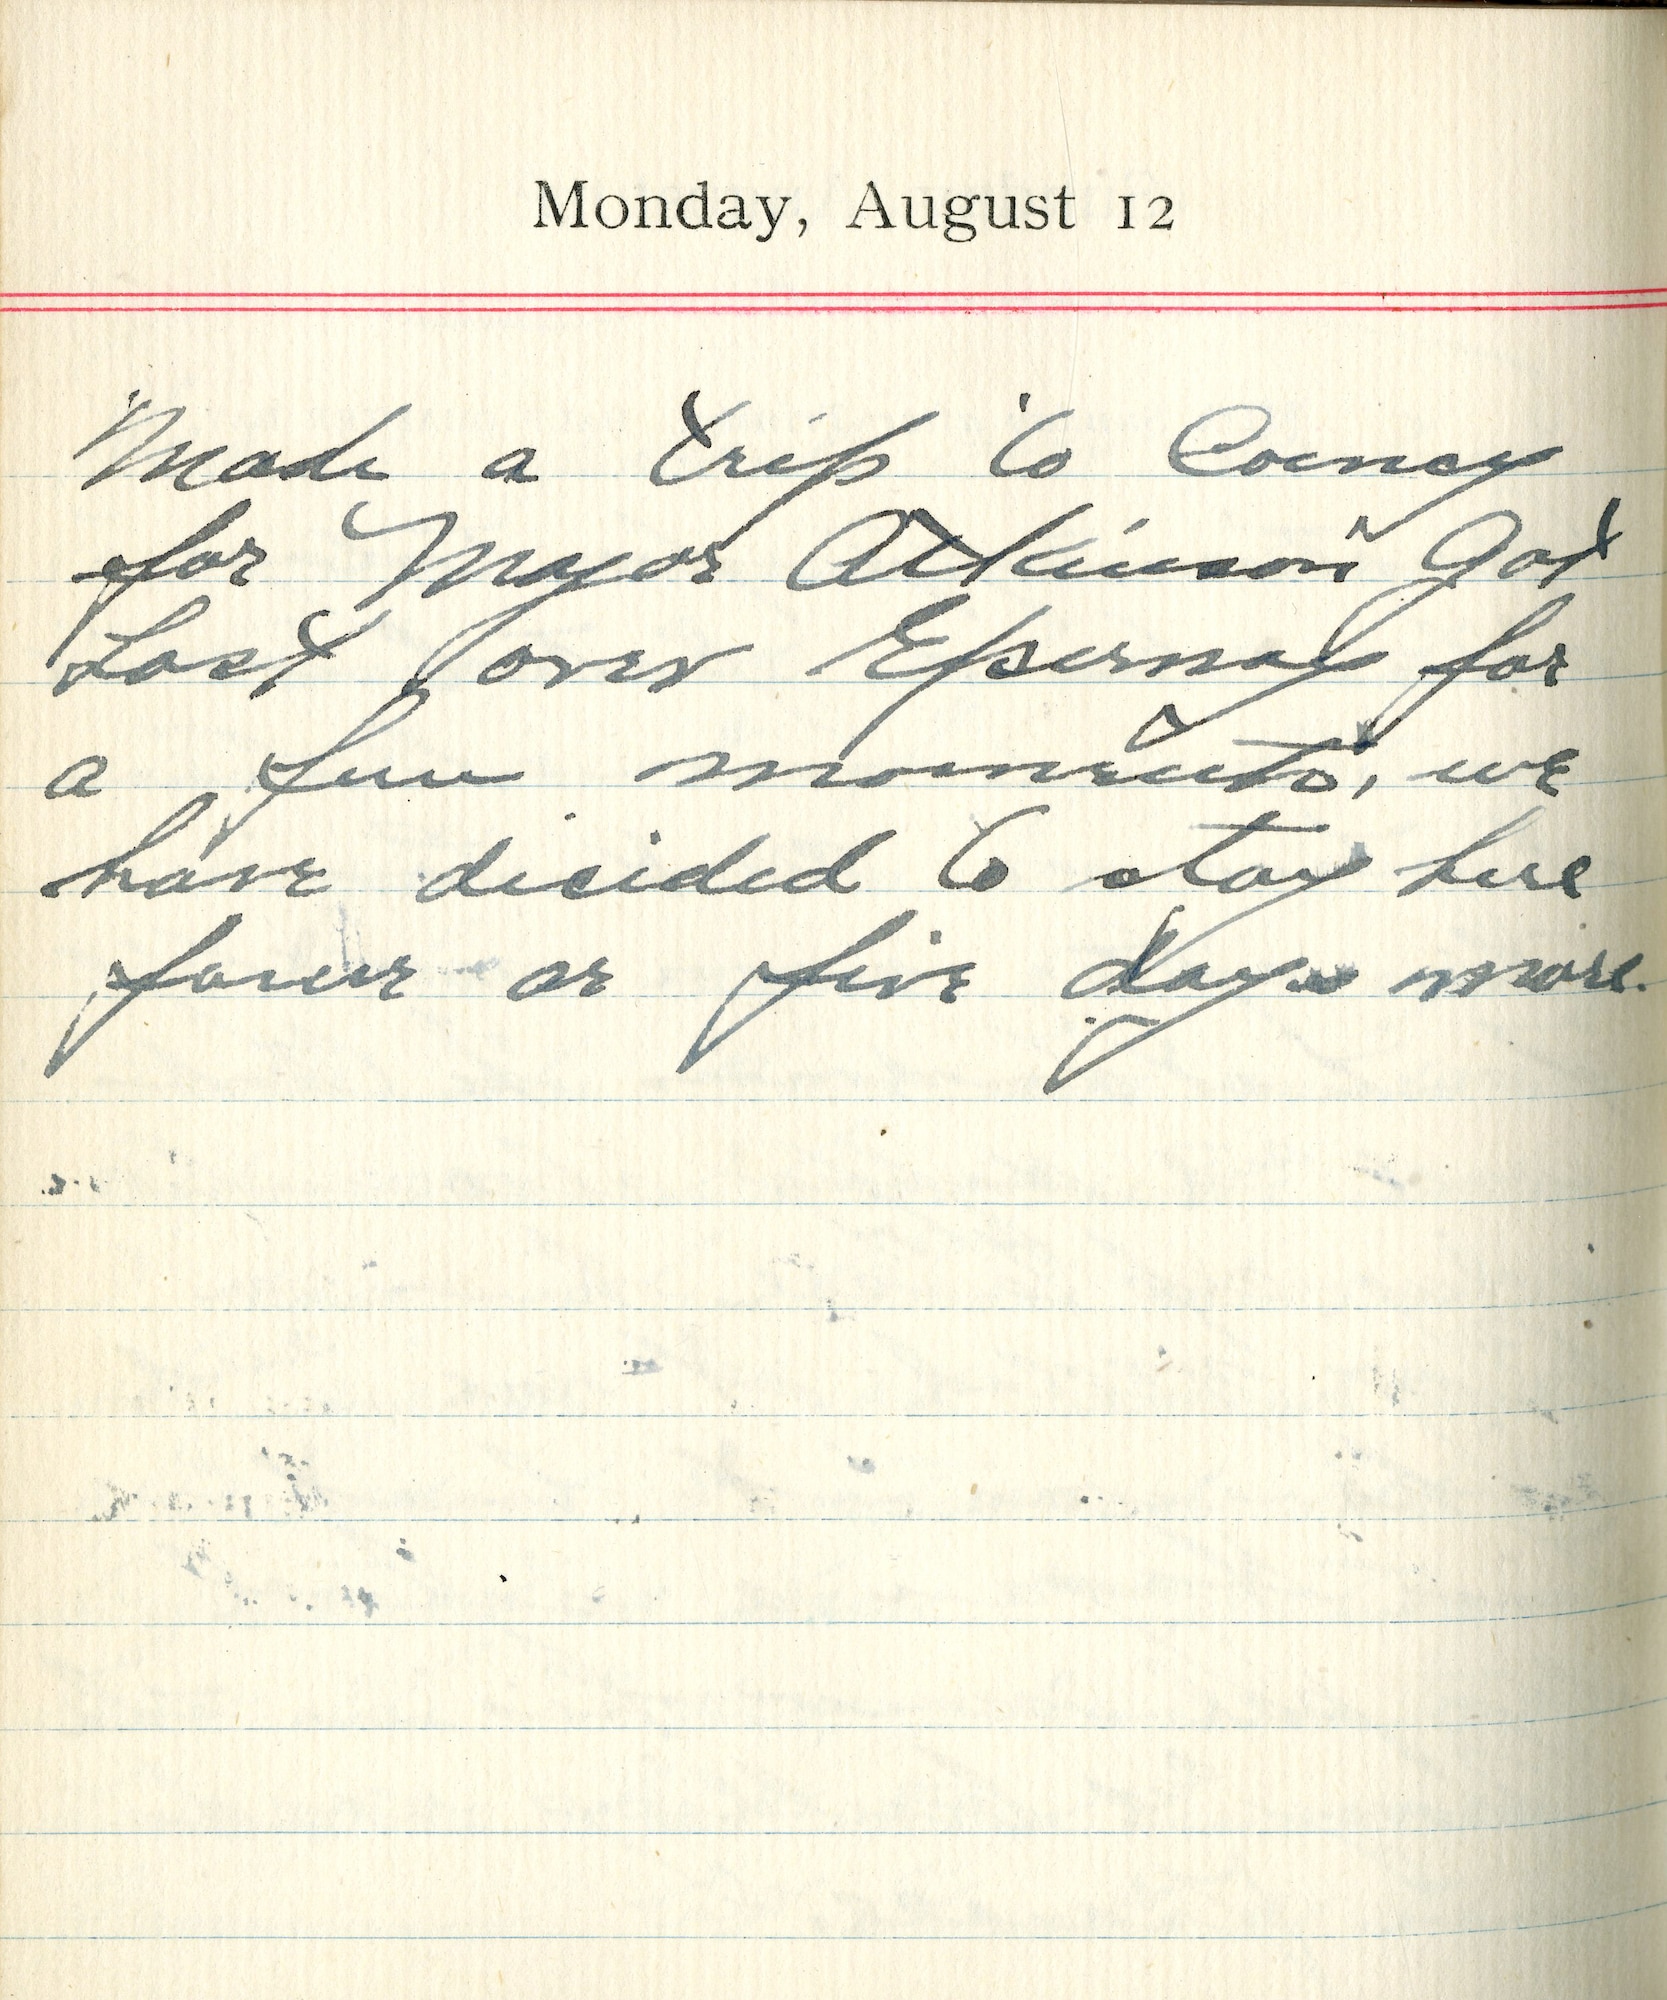 Monday, August 12
Made a trip to Coincy
for Major Atkinson Got
Lost over Epernay for
a few moments, we
have decided to stay here
four or five days more.